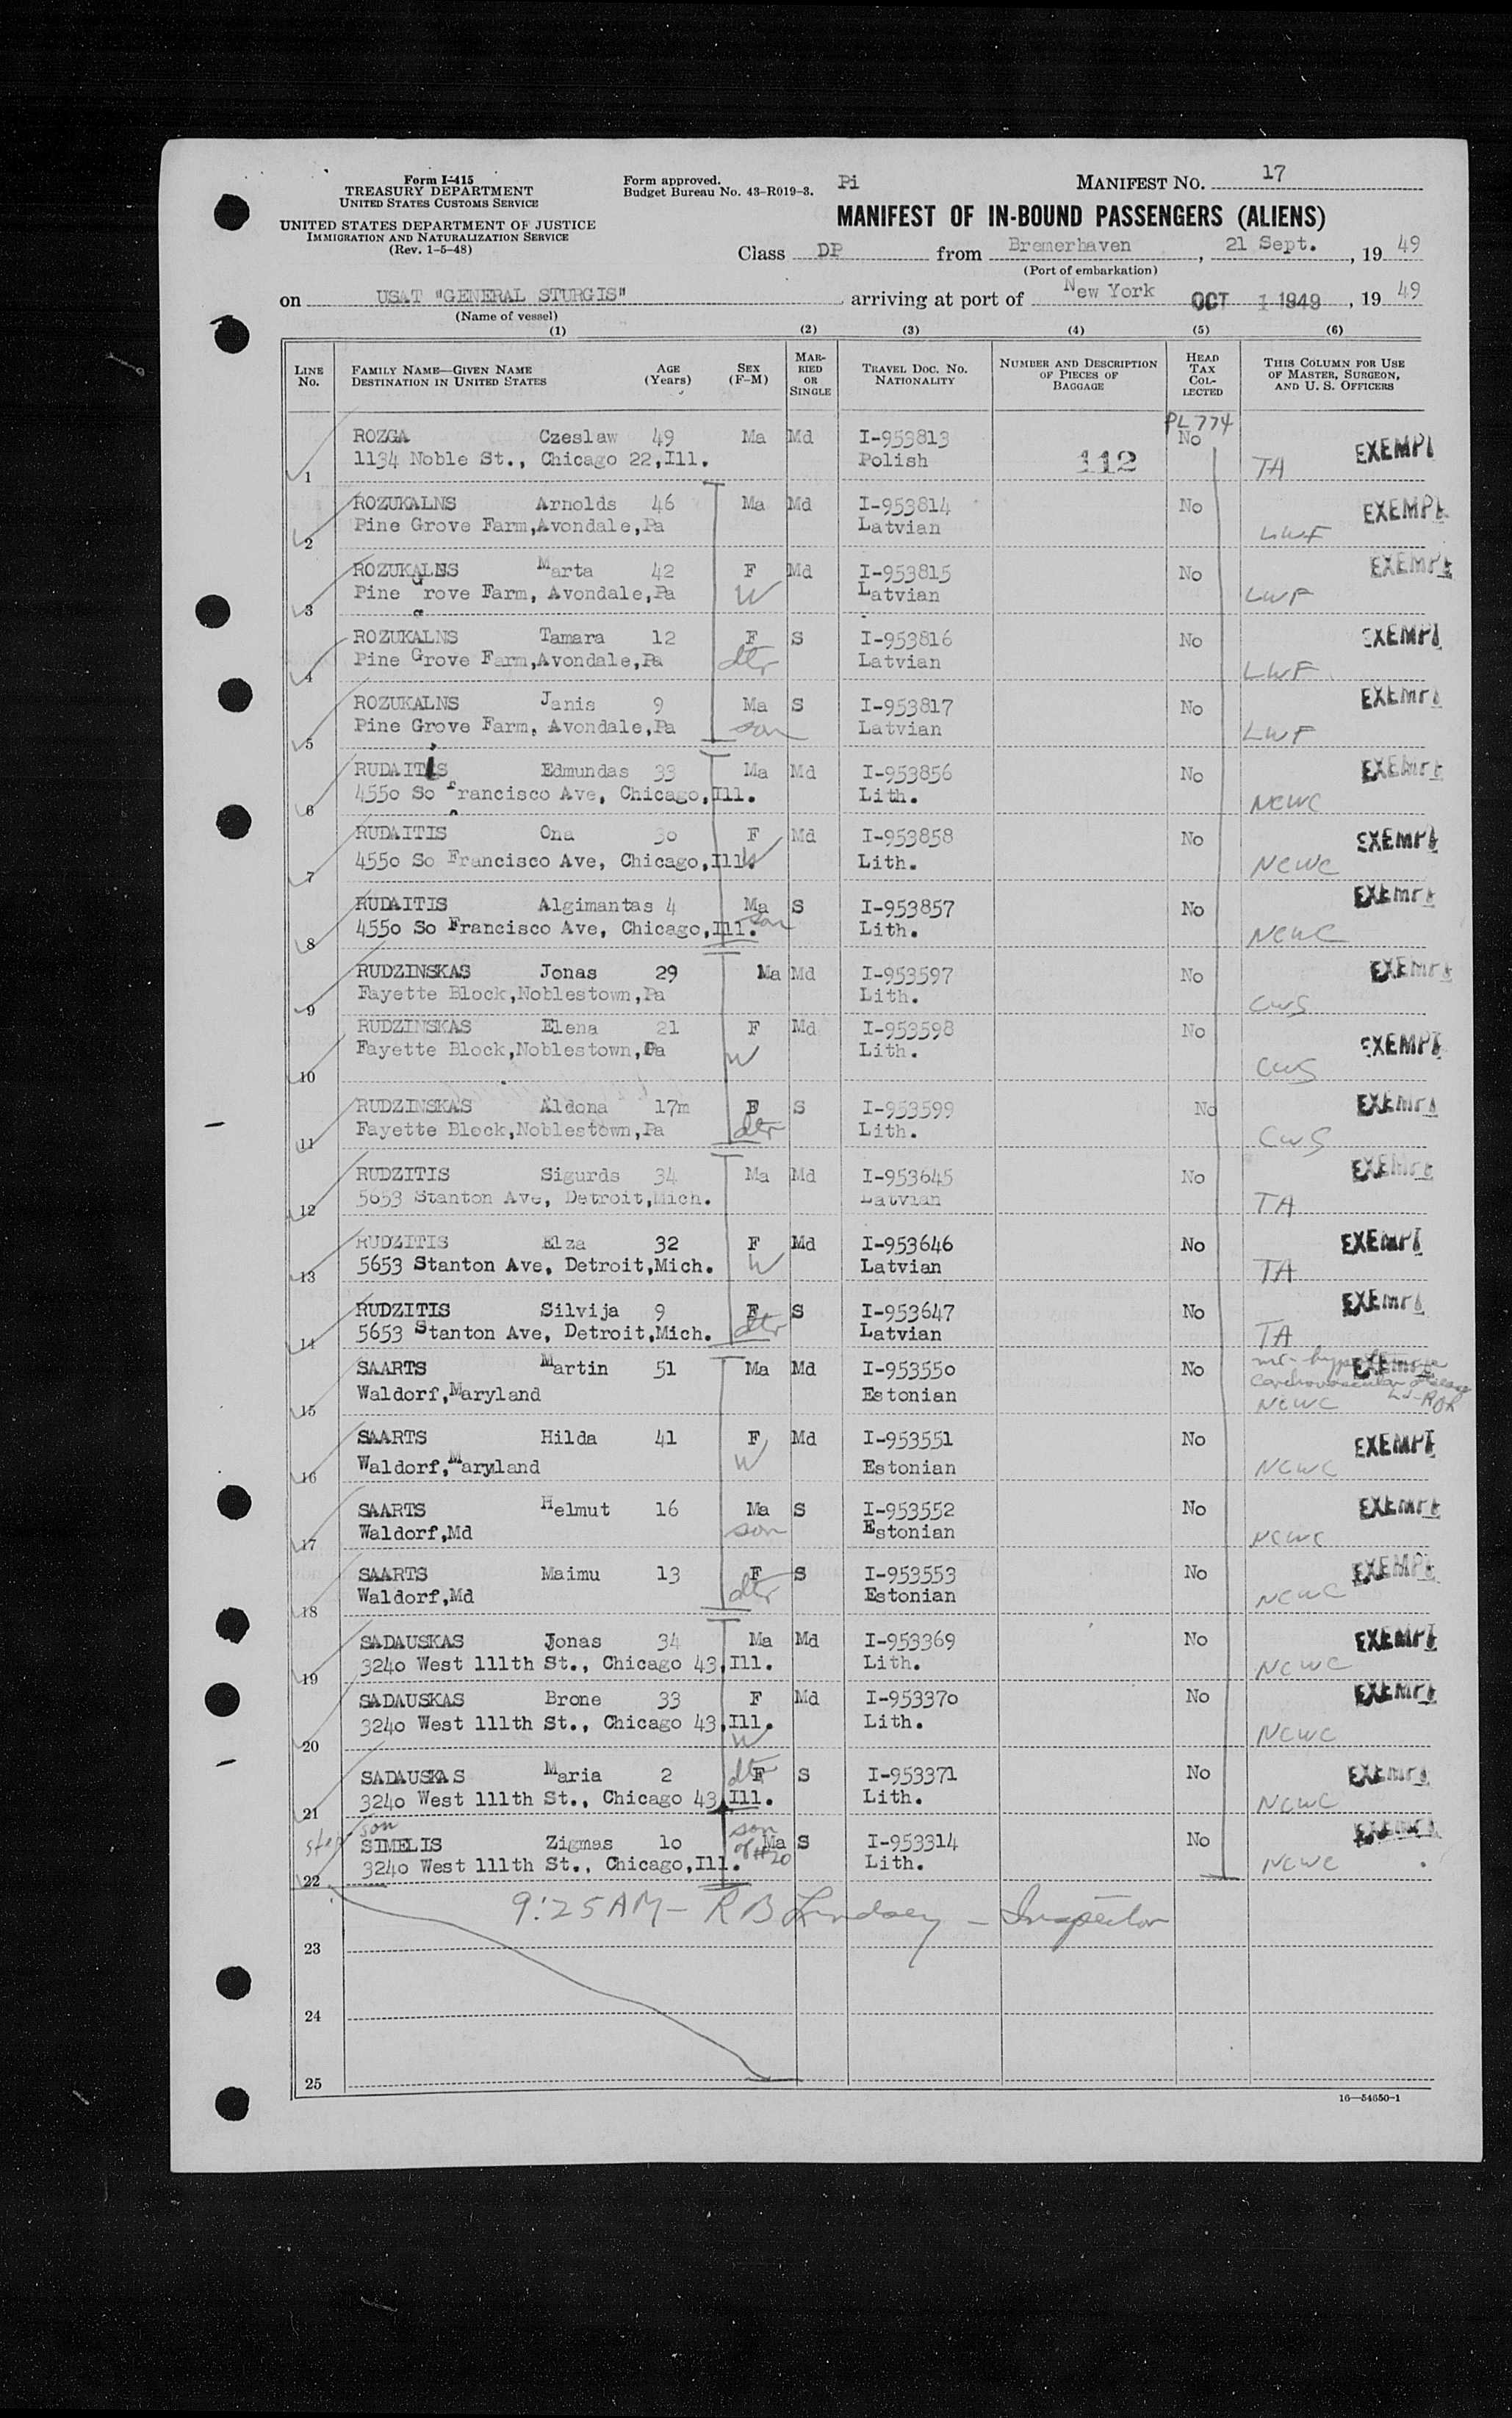 Form I-415
TREASURY DEPARTMENT
UNITED STATES CUSTOMS SERVICE
UNITED STATES DEPARTMENT OF JUSTICE
IMMIGRATION AND NATURALIZATION SERVICE
(Rev. 1-5-48)
Form approved.
Budget Bureau No. 43-R019-3.
Pi
MANIFEST NO. 17
MANIFEST OF IN-BOUND PASSENGERS (ALIENS)
Class DP from Bremerhaven, 21 Sept., 19 49
(Port of embarkation)
on USAT "GENERAL STURGIS" arriving at port of New York OCT 1 1949, 19 49
(Name of vessel)
(1) (2) (3) (4) (5) (6)
LINE No. FAMILY NAME—GIVEN NAME DESTINATION IN UNITED STATES AGE (Years) SEX (F-M) MARRIED OR SINGLE TRAVEL DOC. NO. NATIONALITY NUMBER AND DESCRIPTION OF PIECES OF BAGGAGE HEAD TAX COLLECTED THIS COLUMN FOR USE OF MASTER, SURGEON, AND U. S. OFFICERS
PL 774
ROZGA Czeslaw 49 Ma Md I-953813 No EXEMPT
1 1134 Noble St., Chicago 22,Ill. Polish 112 TA
ROZUKALNS Arnolds 46 Ma Md I-953814 No EXEMPT
2 Pine Grove Farm,Avondale,Pa Latvian LWF
ROZUKALNS Marta 42 F Md I-953815 No EXEMPT
3 Pine Grove Farm, Avondale,Pa W Latvian LWF
ROZUKALNS Tamara 12 F S I-953816 No EXEMPT
4 Pine Grove Farm,Avondale,Pa dtr Latvian LWF
ROZUKALNS Janis 9 Ma S I-953817 No EXEMPT
5 Pine Grove Farm, Avondale,Pa son Latvian LWF
RUDAITIS Edmundas 33 Ma Md I-953856 No EXEMPT
6 4550 So francisco Ave, Chicago,Ill. Lith. NCWC
RUDAITIS Ona 30 F Md I-953858 No EXEMPT
7 4550 So Francisco Ave, Chicago,Ill. W Lith. NCWC
RUDAITIS Algimantas 4 Ma S I-953857 No EXEMPT
8 4550 So Francisco Ave, Chicago,Ill. son Lith. NCWC
RUDZINSKAS Jonas 29 Ma Md I-953597 No EXEMPT
9 Fayette Block,Noblestown,Pa Lith. CWS
RUDZINSKAS Elena 21 F Md I-953598 No EXEMPT
10 Fayette Block,Noblestown,Pa W Lith. CWS
RUDZINSKAS Aldona 17m F S I-953599 No EXEMPT
11 Fayette Block,Noblestown,Pa dtr Lith. CWS
RUDZITIS Sigurds 34 Ma Md I-953645 No EXEMPT
12 5653 Stanton Ave, Detroit,Mich. Latvian TA
RUDZITIS Elza 32 F Md I-953646 No EXEMPT
13 5653 Stanton Ave, Detroit,Mich. W Latvian TA
RUDZITIS Silvija 9 F S I-953647 No EXEMPT
14 5653 Stanton Ave, Detroit,Mich. dtr Latvian TA
SAARTS Martin 51 Ma Md I-953550 No EXEMPT
cardiovascular disease
15 Waldorf,Maryland Estonian NCWC
SAARTS Hilda 41 F Md I-953551 No EXEMPT
16 Waldorf,Maryland W Estonian NCWC
SAARTS Helmut 16 Ma S I-953552 No EXEMPT
17 Waldorf,Md son Estonian NCWC
SAARTS Maimu 13 F S I-953553 No EXEMPT
18 Waldorf,Md dtr Estonian NCWC
SADAUSKAS Jonas 34 Ma Md I-953369 No EXEMPT
19 3240 West 111th St., Chicago 43,Ill. Lith. NCWC
SADAUSKAS Brone 33 F Md I-953370 No EXEMPT
20 3240 West 111th St., Chicago 43,Ill. W Lith. NCWC
SADAUSKAS Maria 2 dtr F S I-953371 No EXEMPT
21 3240 West 111th St., Chicago 43,Ill. Lith. NCWC
step son son of #20
SIMELIS Zigmas 10 Ma S I-953314 No EXEMPT
22 3240 West 111th St., Chicago,Ill. Lith. NCWC
9:25AM - R B Lindsey - Inspector
23
24
25
16—54650-1